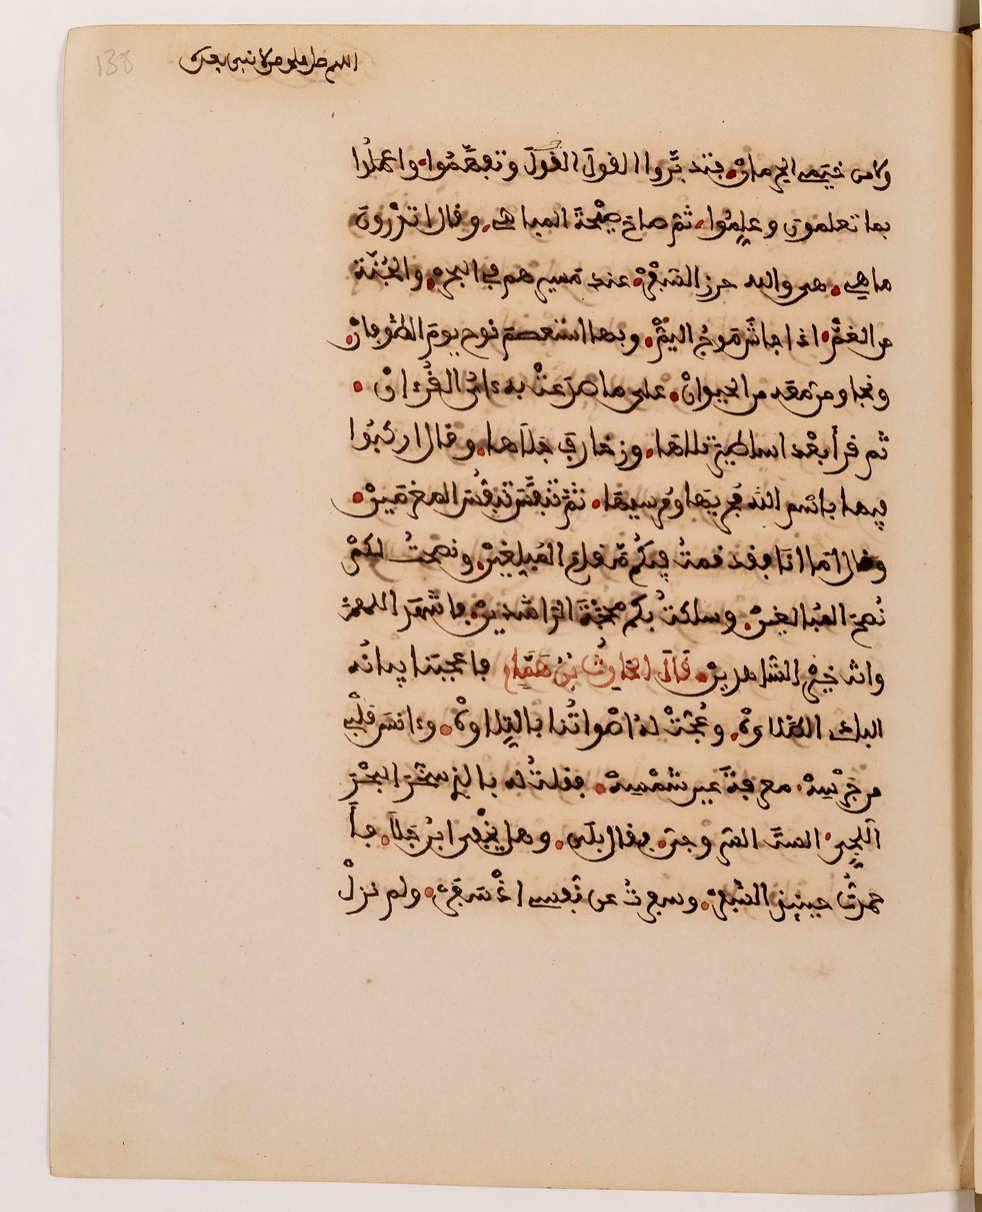 اللهم صل على من لا نبي بعده
138
ولا من خيمي الحرمان فتدبروا القول القول وتفهموا واعملوا
بما تعلمون وعلموا ثم صاح صيحة المباهي وقال اتدرون
ما هي هي والله حرز السفر عند مسيرهم في البحر والجنة
من الغم اذا جاش موج اليم وبها استعصم نوح يوم الطوفان
ونجا ومن معه من الحيوان على ما صدعت به ءاي القرءان
ثم قرأ بعد اساطير تلاها وزخارف جلاها وقال اركبوا
فيها باسم الله مجريها ومرسيها ثم تنفس تنفس المغرمين
وقال اما انا فقد قمت فيكم مقام المبلغين ونصحت لكم
نصح المبالغين وسلكت بكم محجة الراشدين فاشهد اللهم
وانت خير الشاهدين قال الحارث بن همام فاعجبنا بيانه
البادي الطلاوة وعجت له اصواتنا بالتلاوة وءانس قلبي
من جرسه معرفة عين شمسه فقلت له بالذي سخر البحر
اللجي الست السروجي فقال بلى وهل يخفى ابن جلا فأ
حمدت حينئذ السفر وسفرت عن نفسي اذ سفر ولم نزل